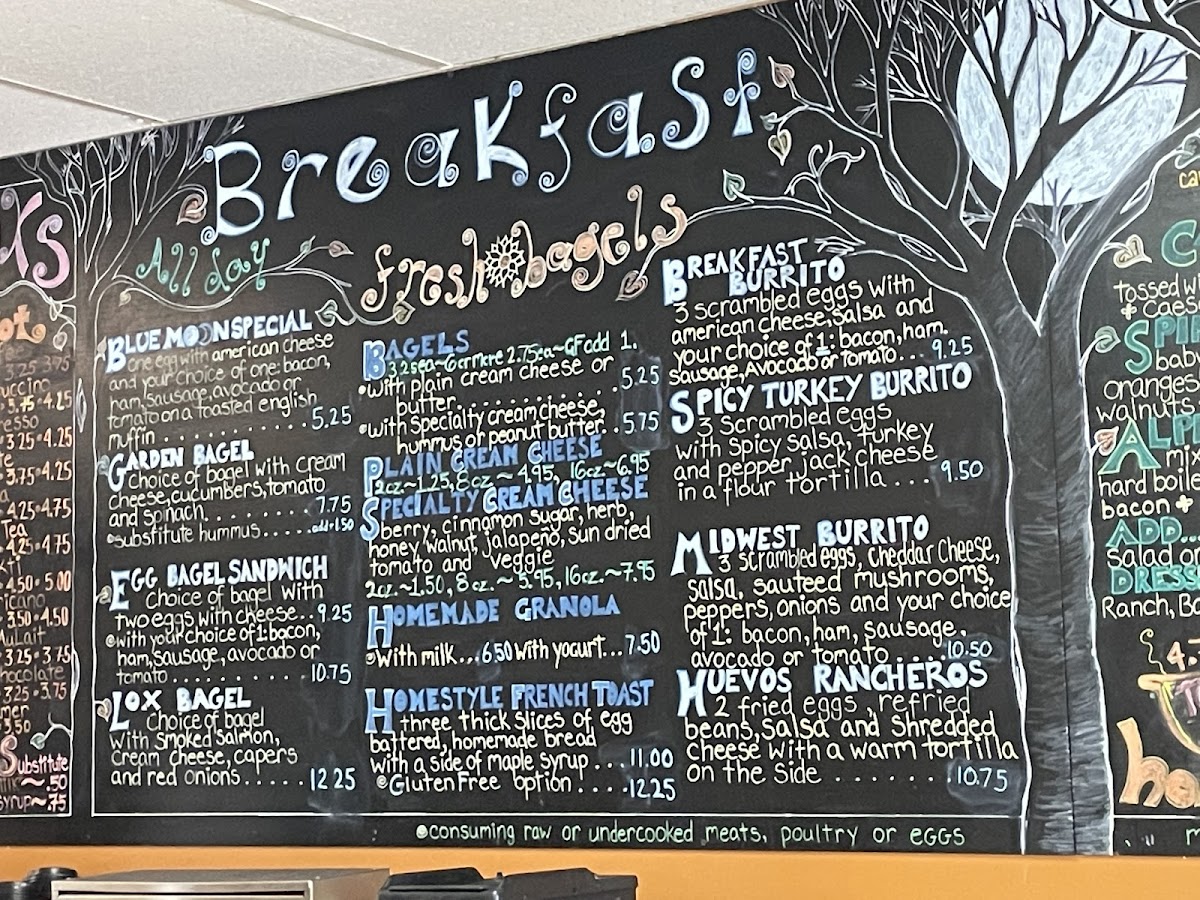 Breakfast
All day
fresh bagels
BLUE MOON SPECIAL
one egg with american cheese
and your choice of one: bacon,
ham, sausage, avocado or
tomato on a toasted english
muffin . . . . . . . . . . 5.25
GARDEN BAGEL
Choice of bagel with cream
cheese, cucumbers, tomato
and spinach. . . . . . . . . 7.75
substitute hummus . . . . . add 1.50
EGG BAGEL SANDWICH
Choice of bagel with
two eggs with cheese . . 9.25
with your choice of 1: bacon,
ham, sausage, avocado or
tomato . . . . . . . . . . . 10.75
LOX BAGEL
Choice of bagel
with smoked salmon,
cream cheese, capers
and red onions . . . . . 12.25
BAGELS
3.25ea~6 or more 2.75ea~GF add 1.
with plain cream cheese or
butter. . . . . . . . . . . 5.25
with specialty cream cheese,
hummus or peanut butter. . 5.75
PLAIN CREAM CHEESE
2oz.~1.25, 8oz.~4.95, 16oz.~6.95
SPECIALTY CREAM CHEESE
berry, cinnamon sugar, herb,
honey walnut, jalapeño, sun dried
tomato and veggie
2oz.~1.50, 8oz.~5.95, 16oz.~7.95
HOMEMADE GRANOLA
with milk... 6.50 with yogurt... 7.50
HOMESTYLE FRENCH TOAST
three thick slices of egg
battered, homemade bread
with a side of maple syrup . . . 11.00
Gluten Free option . . . . 12.25
BREAKFAST
BURRITO
3 scrambled eggs with
american cheese, salsa and
your choice of 1: bacon, ham,
sausage, Avocado or Tomato . . . 9.25
SPICY TURKEY BURRITO
3 scrambled eggs
with spicy salsa, turkey
and pepper jack cheese
in a flour tortilla . . . 9.50
MIDWEST BURRITO
3 scrambled eggs, cheddar cheese,
salsa, sauteed mushrooms,
peppers, onions and your choice
of 1: bacon, ham, sausage,
avocado or tomato . . . . 10.50
HUEVOS RANCHEROS
2 fried eggs, refried
beans, salsa and shredded
cheese with a warm tortilla
on the side . . . . . . . . 10.75
consuming raw or undercooked meats, poultry or eggs
3.25 3.75
5.75 4.25
3.25 4.25
3.75 4.25
4.25 4.75
Tea
4.25 4.75
4.50 5.00
3.50 4.50
3.25 3.75
3.25 3.75
3.50
Substitute
~.50
syrup~.75
tossed w
SPI
bab
oranges
walnuts
ALP
mix
hard boile
bacon +
ADD...
salad or
DRESS
Ranch, B